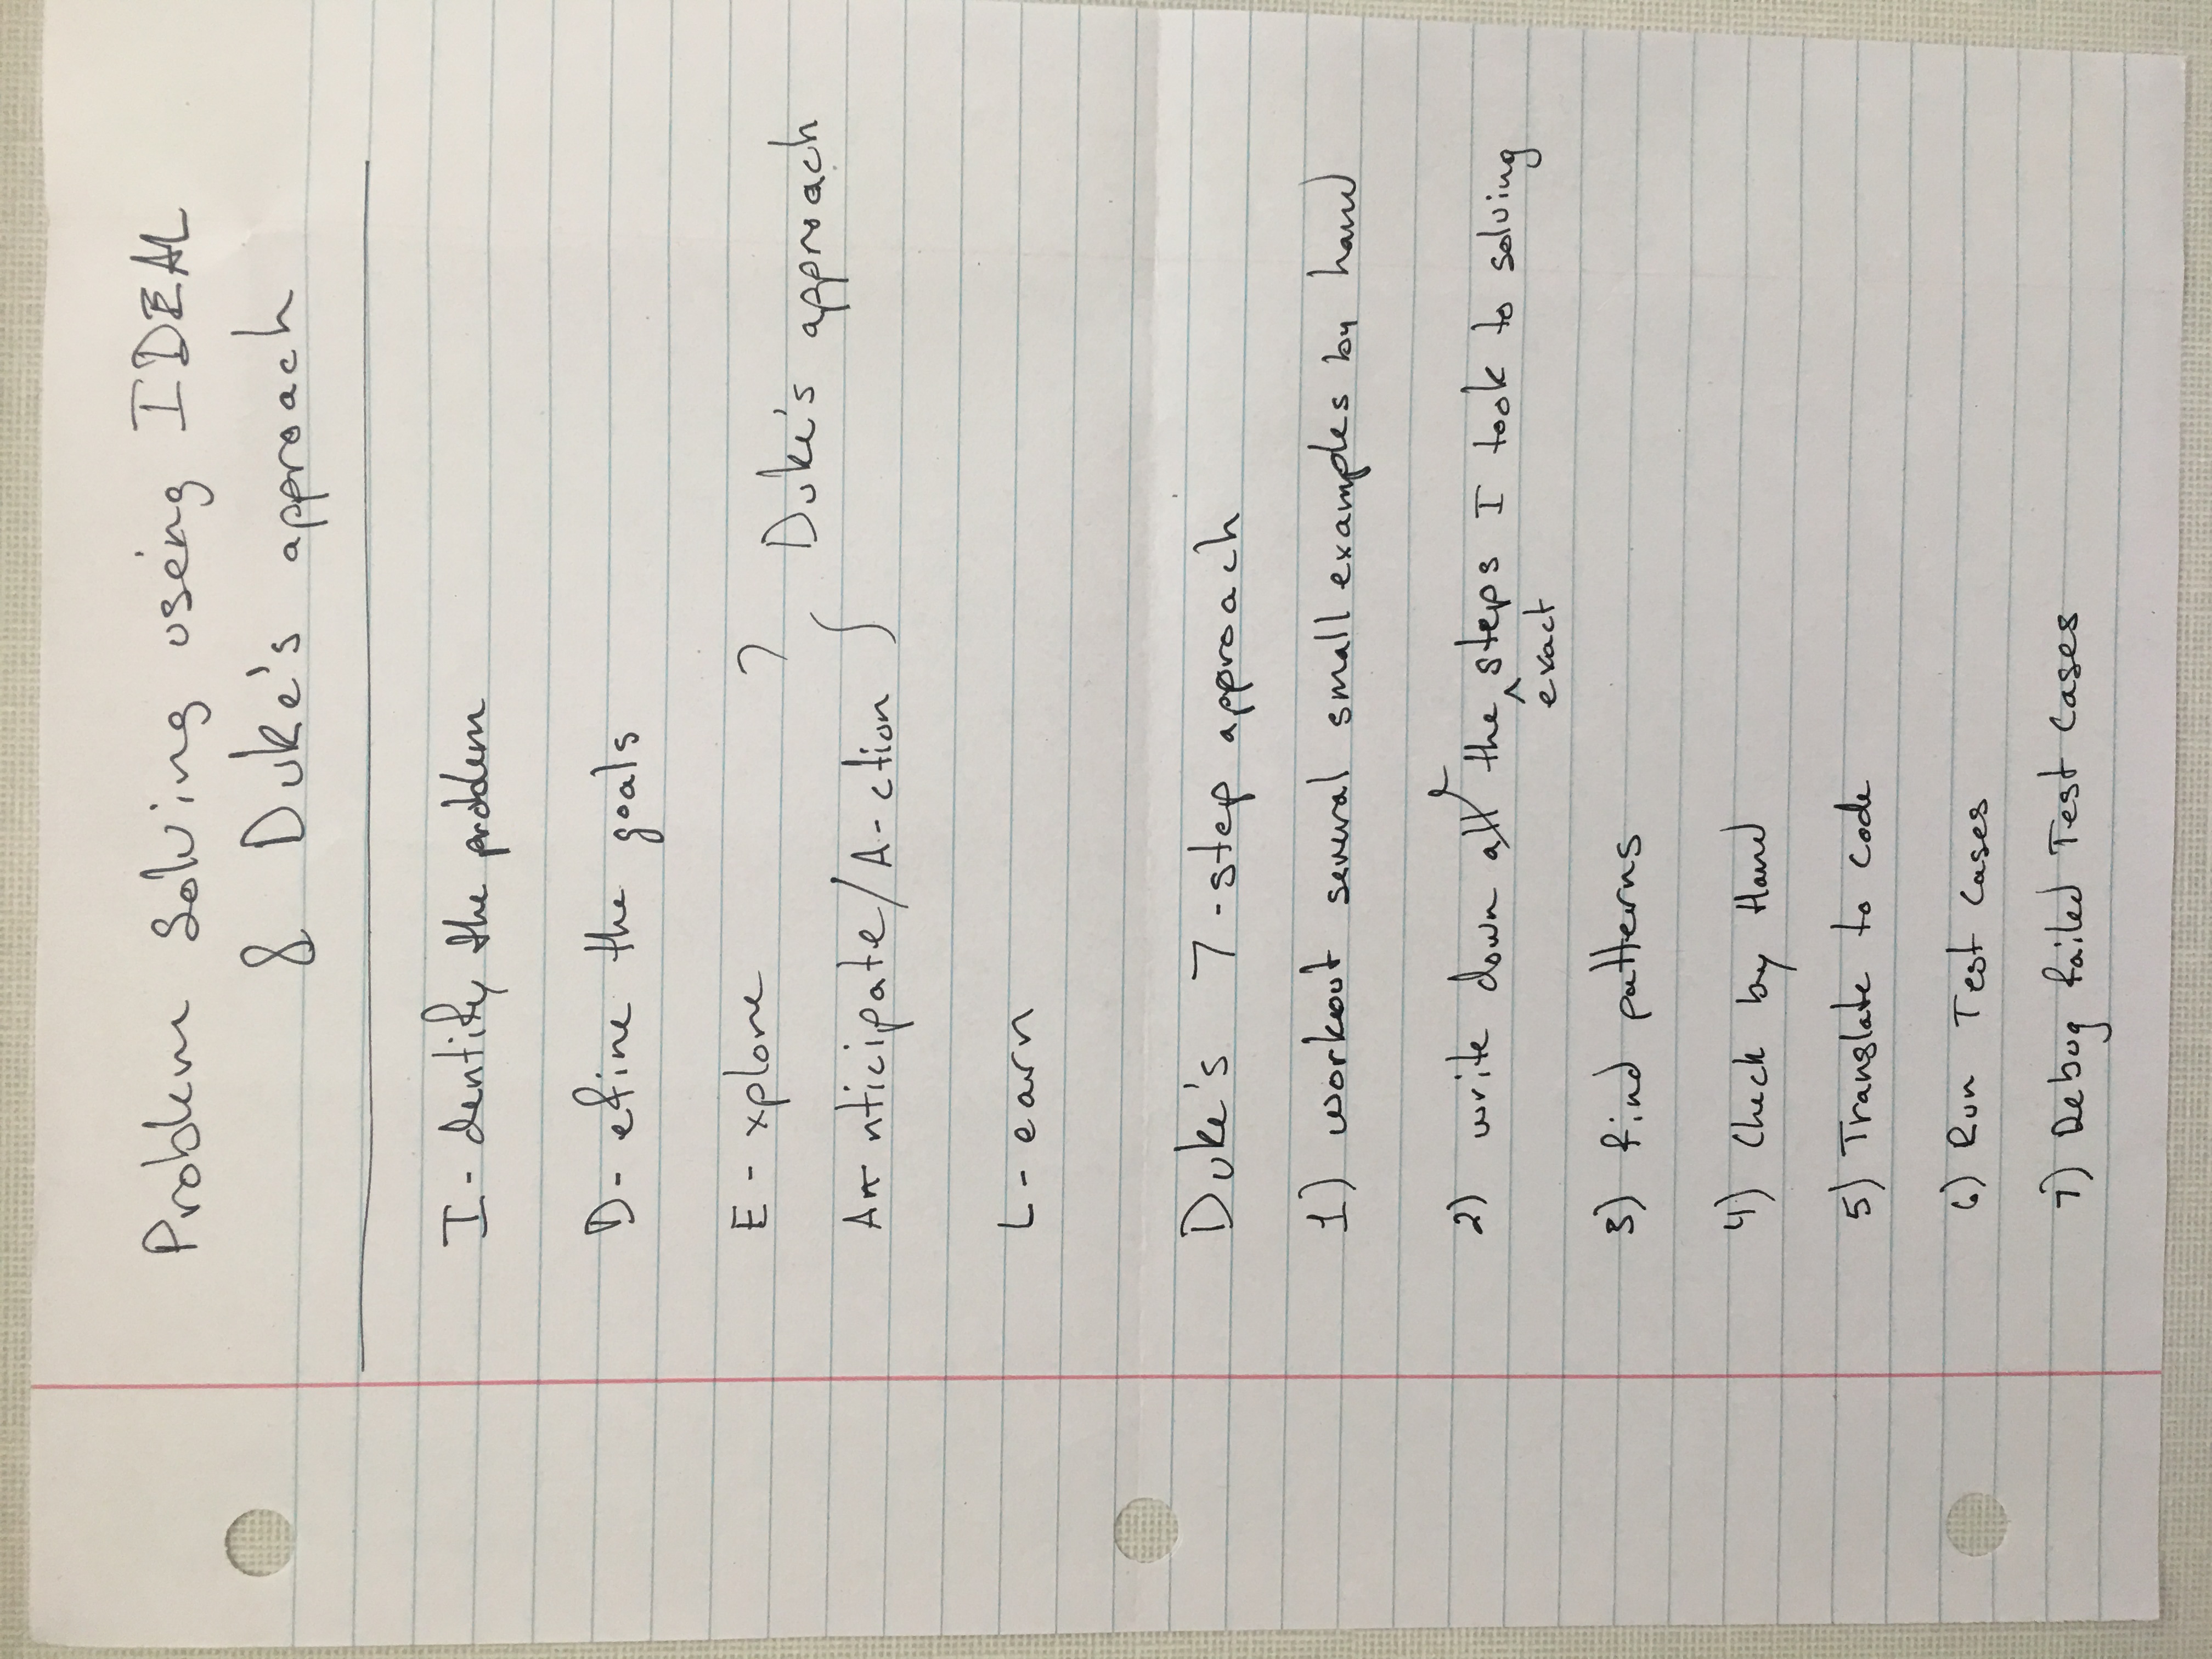 Problem Solving using IDEAL
& Duke's approach
I - dentify the problem
D - efine the goals
E - xplore
Duke's approach
A - nticipate / A - ction
L - earn
Duke's 7 - step approach
1) workout several small examples by hand
2) write down the steps I took to solving
exact
3) find patterns
4) Check by Hand
5) Translate to Code
6) Run Test Cases
7) Debug failed Test Cases